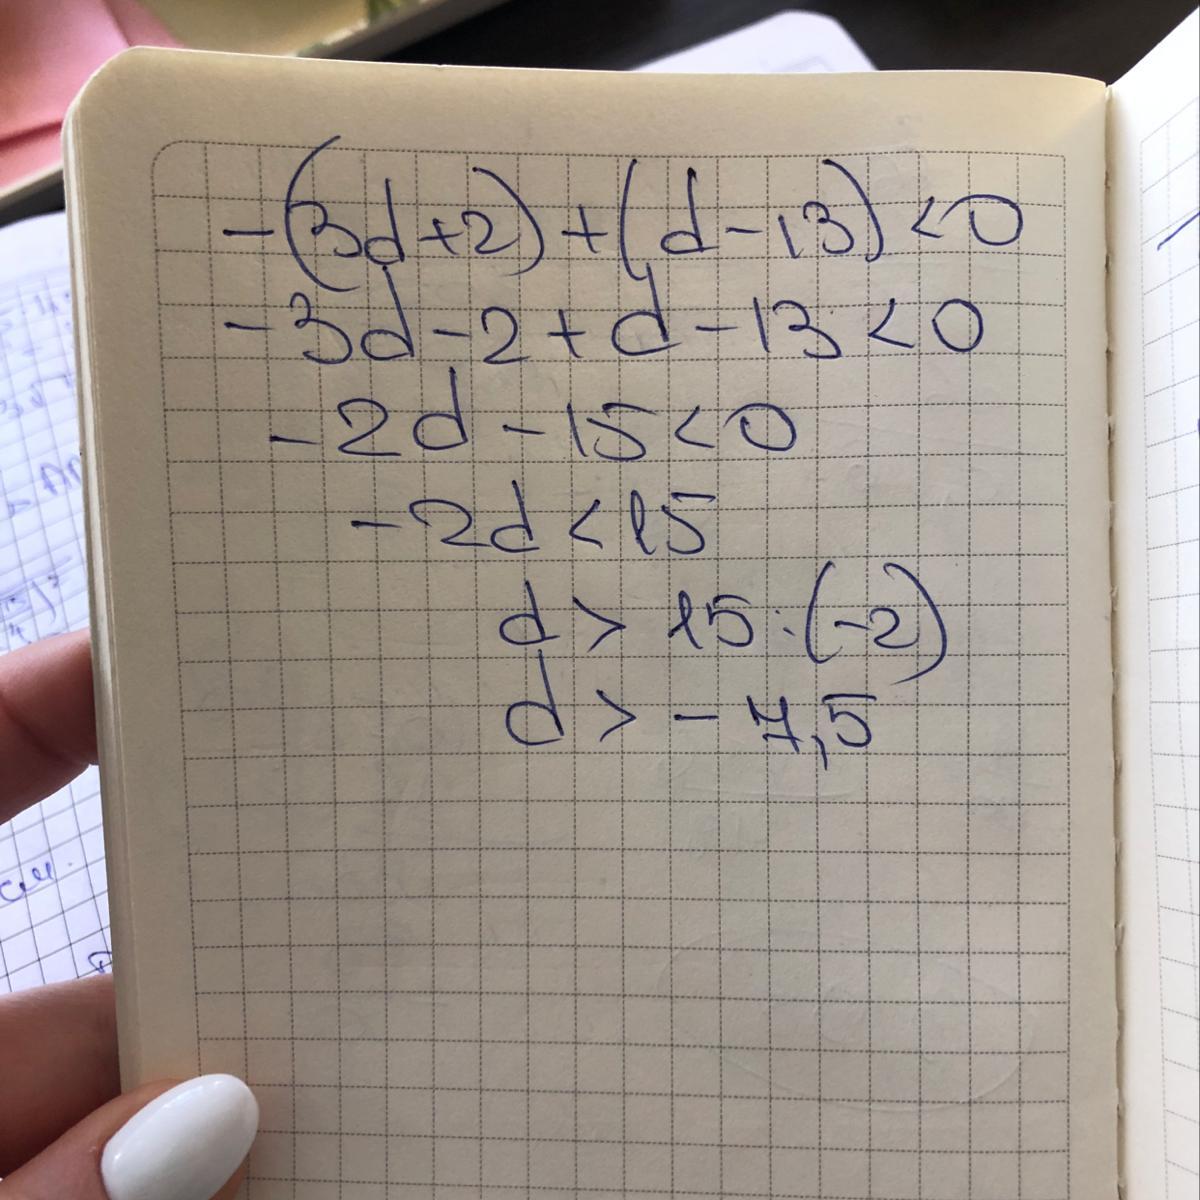 -(3d+2)+(d-13)<0
-3d-2+d-13<0
-2d-15<0
-2d<15
d>15:(-2)
d>-7,5